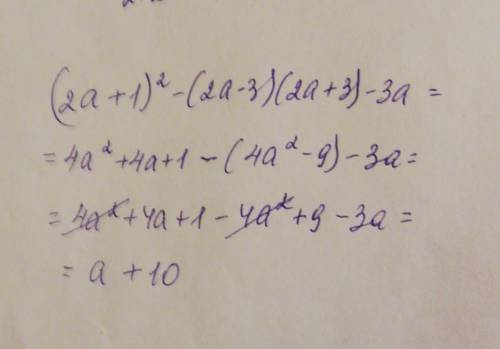 (2a+1)² - (2a-3)(2a+3) - 3a =
= 4a² + 4a + 1 - (4a² - 9) - 3a =
= 4a² + 4a + 1 - 4a² + 9 - 3a =
= a + 10